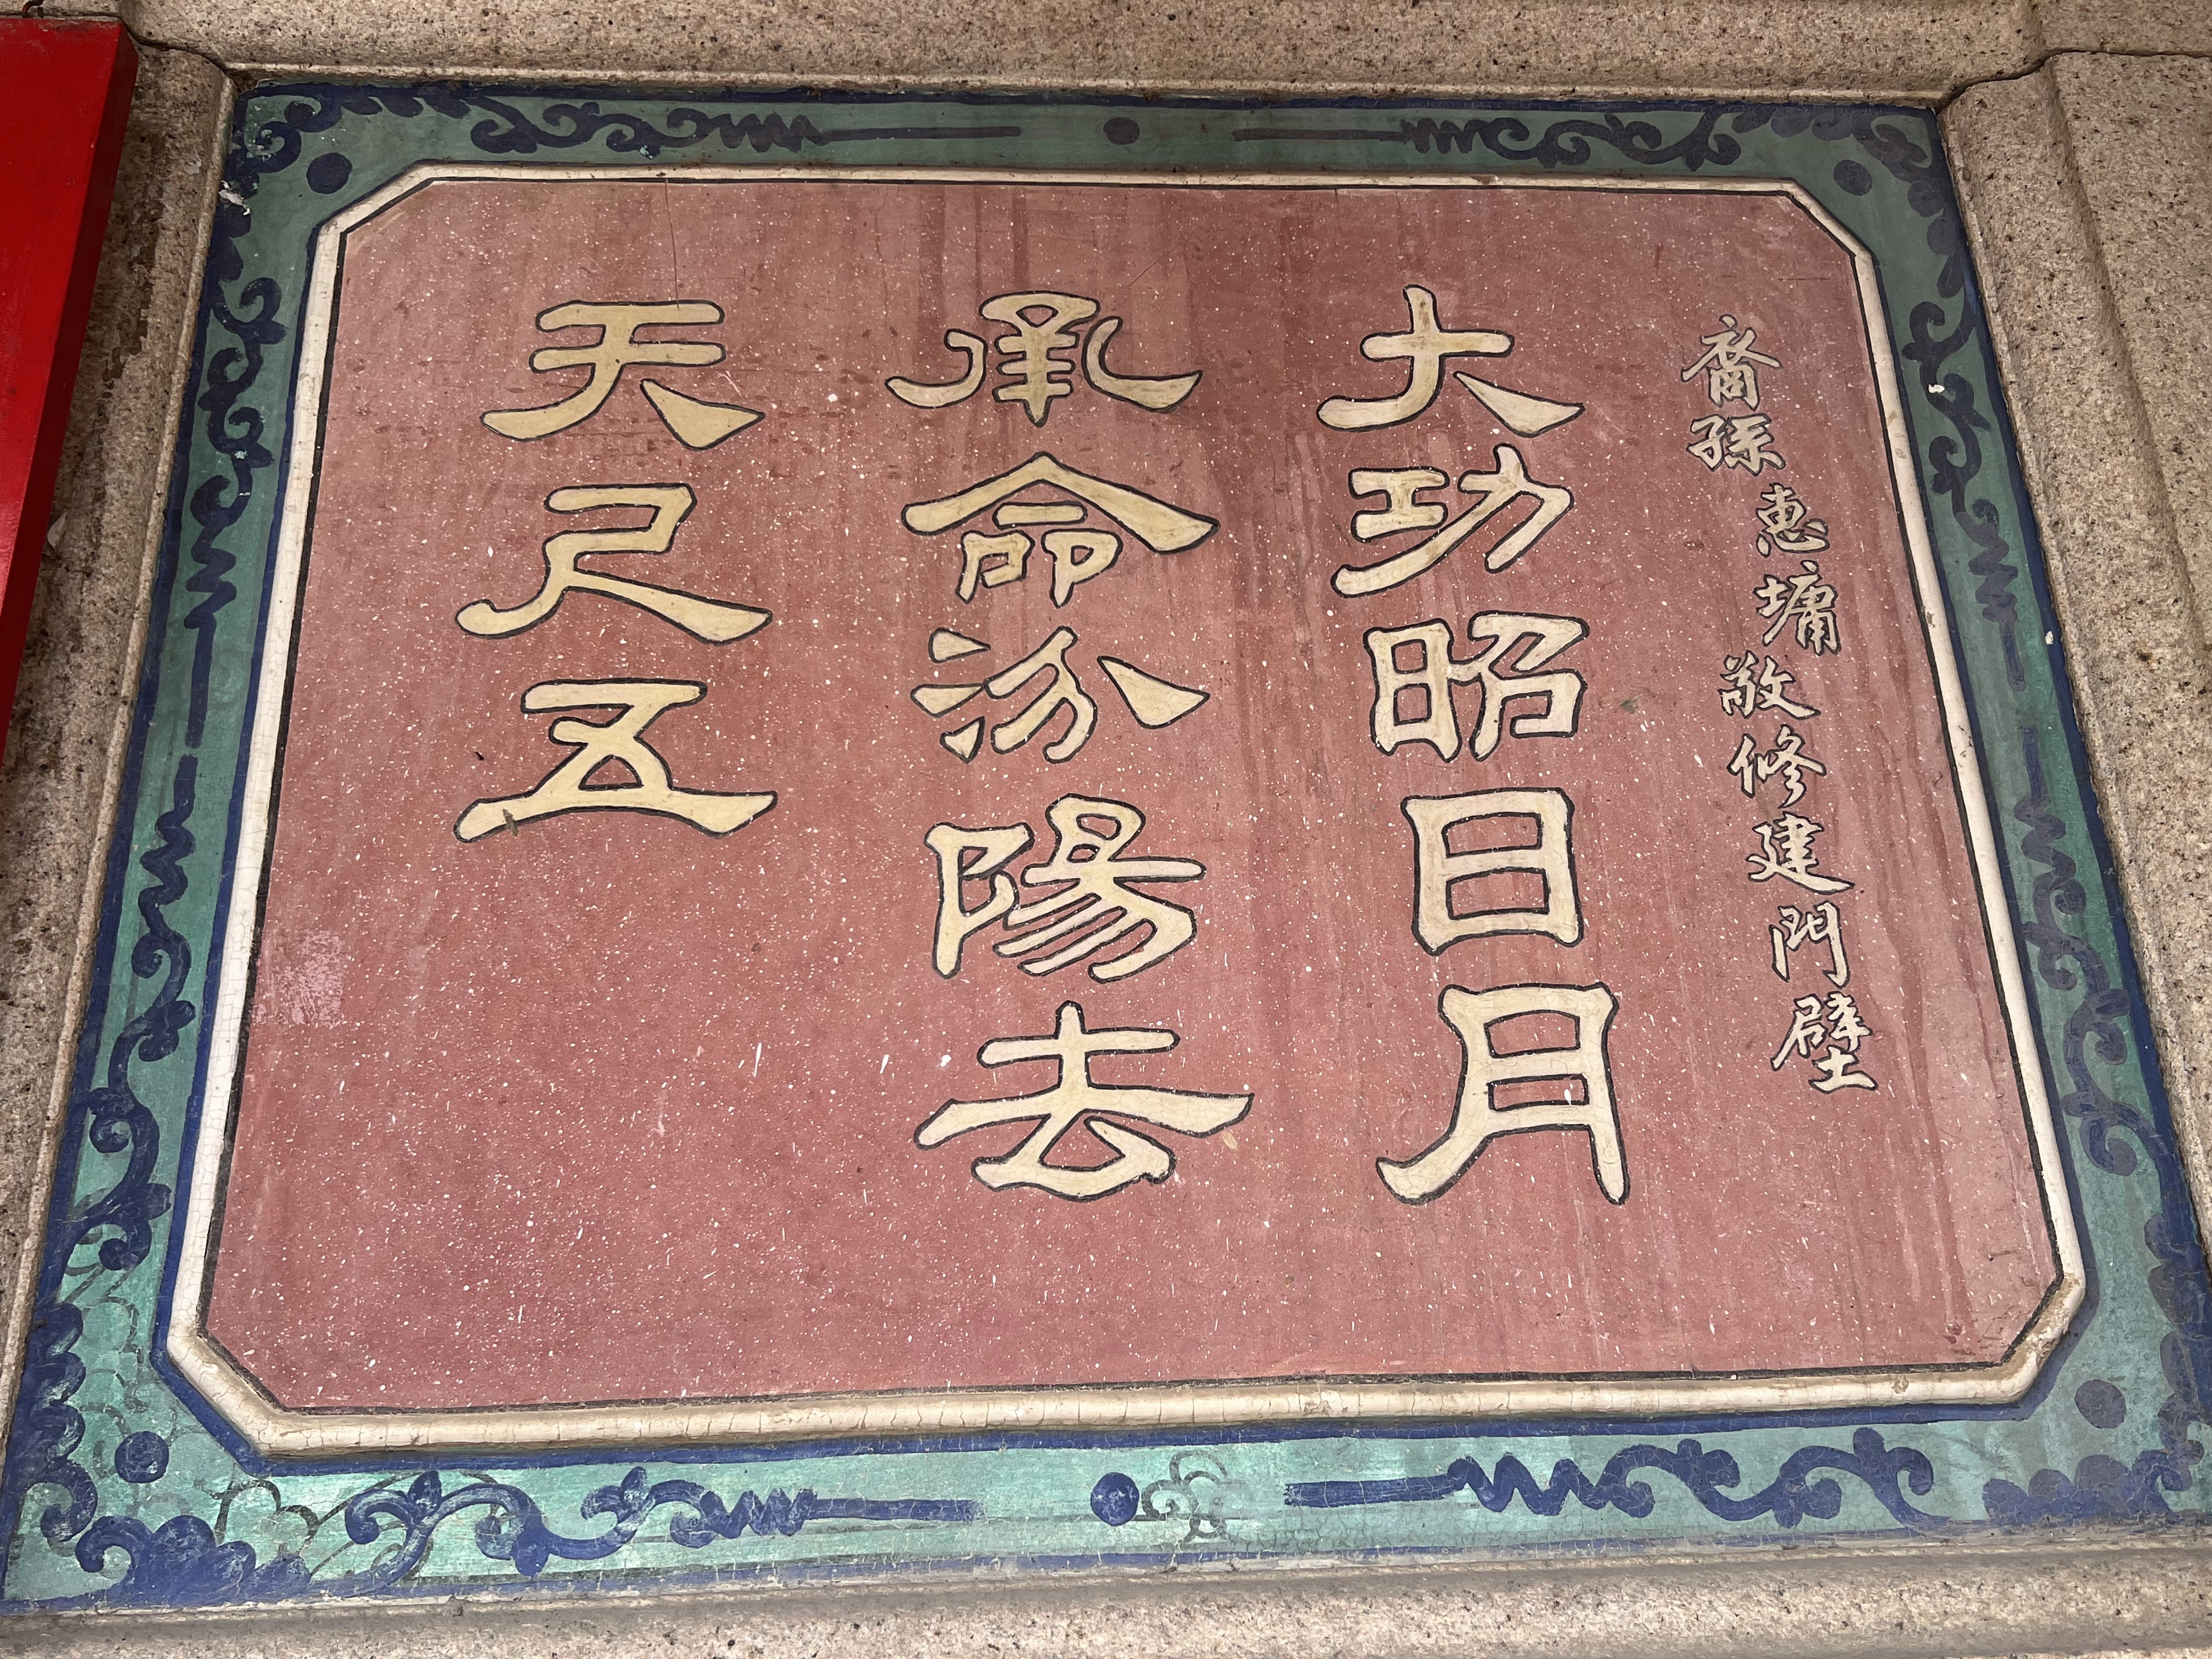 裔孫惠墉敬修建門壁
大功昭日月
承命汾陽去
天尺五